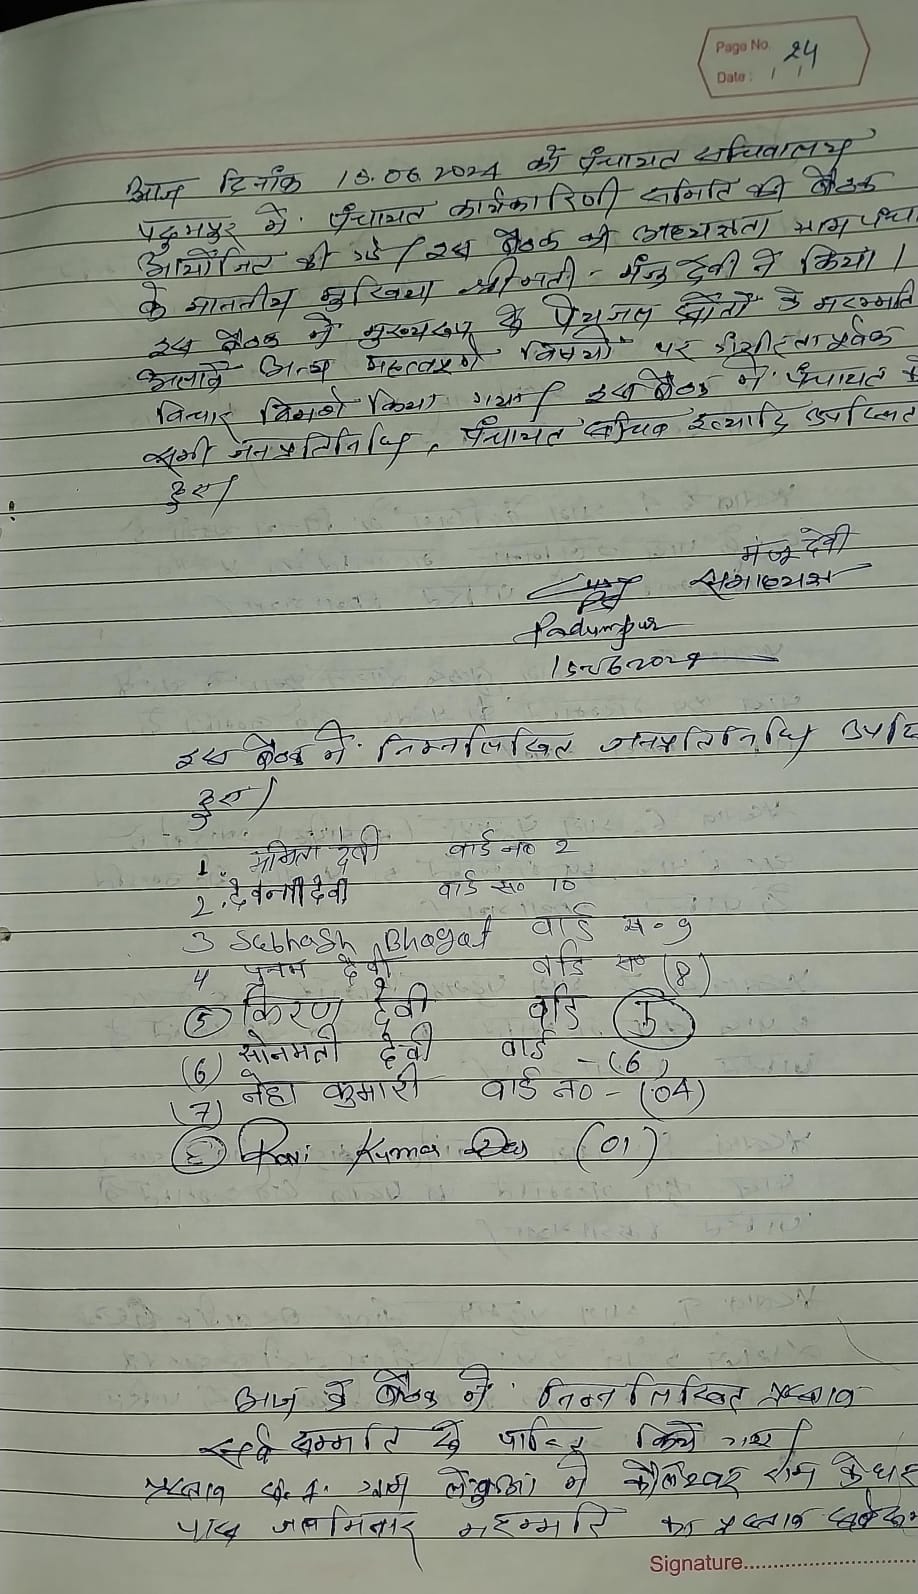 Page No. 24
Date: / /
आज दिनांक 15.06.2024 को पंचायत सचिवालय
पदुमपुर में पंचायत कार्यकारिणी समिति की बैठक
आयोजित की गई। इस बैठक की अध्यक्षता ग्राम पंचा
के माननीय मुखिया श्रीमती - मंजु देवी ने किया।
इस बैठक में मुख्यरूप के पेयजल स्रोतों के मरम्मति
अलावे अन्य महत्वपूर्ण विषयों पर गंभीरता पूर्वक
विचार विमर्श किया गया। इस बैठक में पंचायत के
सभी जनप्रतिनिधि, पंचायत सचिव इत्यादि उपस्थित
हुए।
मंजू देवी
सभाध्यक्ष
Padumpur
15.06.2024
इस बैठक में निम्नलिखित जनप्रतिनिधि उपस्थि
हुए।
1. देवी वार्ड न० 2
2. देवन्ती देवी वार्ड स० 10
3 Subhash Bhagat वार्ड स० 9
4 पुनम देवी वार्ड स० (8)
5 किरण देवी वार्ड
(6) सोनमती देवी वार्ड - (6)
(7) नेहा कुमारी वार्ड न० - (04)
Ravi Kumar Das (01)
आज के बैठक में निम्नलिखित प्रस्ताव
सर्व सम्मति से पारित किये गए।
प्रस्ताव सं. 1. ग्राम में कौलेश्वर राम के घर
पास जलमिनार मरम्मति का प्रस्ताव
Signature